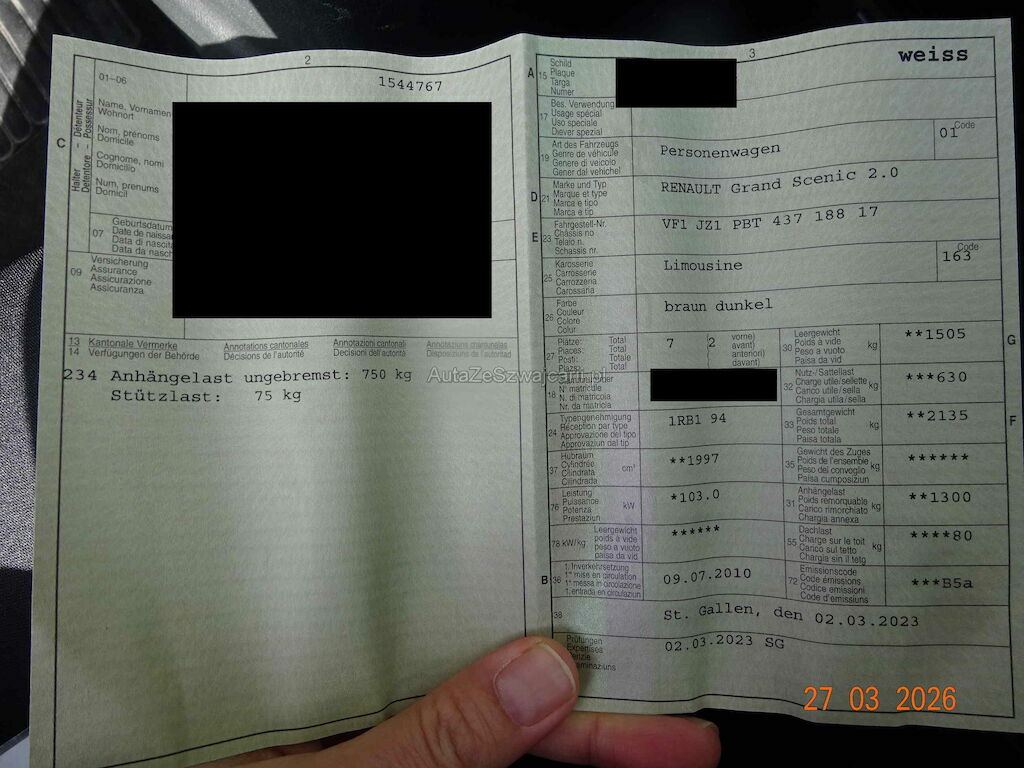 2
1544767
01-06
Name, Vornamen
Wohnort
Nom, prénoms
Domicile
Cognome, nomi
Domicilio
Num, prenums
Domicil
C
Halter – Détenteur
Detentore – Possessur
07
Geburtsdatum
Date de naissa
Data di nascit
Data da nasch
09
Versicherung
Assurance
Assicurazione
Assicuranza
13 Kantonale Vermerke
14 Verfügungen der Behörde
Annotations cantonales
Décisions de l'autorité
Annotazioni cantonali
Decisioni dell'autorità
Annotaziuns chantunalas
Disposiziuns de l'autoritad
234 Anhängelast ungebremst: 750 kg
Stützlast: 75 kg
AutaZeSzwajcarii.pl
3
weiss
A 15
Schild
Plaque
Targa
Numer
17
Bes. Verwendung
Usage spécial
Uso speciale
Diever spezial
19
Art des Fahrzeugs
Genre de véhicule
Genere di veicolo
Gener dal vehichel
Personenwagen
Code
01
D 21
Marke und Typ
Marque et type
Marca e tipo
Marca e tip
RENAULT Grand Scenic 2.0
E 23
Fahrgestell-Nr.
Châssis no
Telaio n.
Schassis nr.
VF1 JZ1 PBT 437 188 17
25
Karosserie
Carrosserie
Carrozzeria
Carossaria
Limousine
Code
163
26
Farbe
Couleur
Colore
Colur
braun dunkel
27
Plätze: Total
Places: Total
Posti: Totale
Plazs: Total
7
2
vorne)
avant)
anteriori)
davant)
30
Leergewicht
Poids à vide
Peso a vuoto
Paisa da vid
kg
**1505
G
18
Stammnummer
N° matricule
N. di matricola
Nr. da matricla
32
Nutz-/Sattellast
Charge utile/sellette
Carico utile/sella
Chargia utila/sella
kg
***630
24
Typengenehmigung
Réception par type
Approvazione del tipo
Approvaziun dal tip
1RB1 94
33
Gesamtgewicht
Poids total
Peso totale
Paisa totala
kg
**2135
F
37
Hubraum
Cylindrée
Cilindrata
Cilindrada
cm³
**1997
35
Gewicht des Zuges
Poids de l'ensemble
Peso del convoglio
Paisa cumposiziun
kg
******
76
Leistung
Puissance
Potenza
Prestaziun
kW
*103.0
31
Anhängelast
Poids remorquable
Carico rimorchiato
Chargia annexa
kg
**1300
78 kW/kg
Leergewicht
poids à vide
peso a vuoto
paisa da vid
******
55
Dachlast
Charge sur le toit
Carico sul tetto
Chargia sin il tetg
kg
****80
B 36
1. Inverkehrsetzung
1re mise en circulation
1a messa in circolazione
1. entrada en circulaziun
09.07.2010
72
Emissionscode
Code émissions
Codice emissioni
Code d'emissiuns
***B5a
38
St. Gallen, den 02.03.2023
Prüfungen
Expertises
02.03.2023 SG
27 03 2026